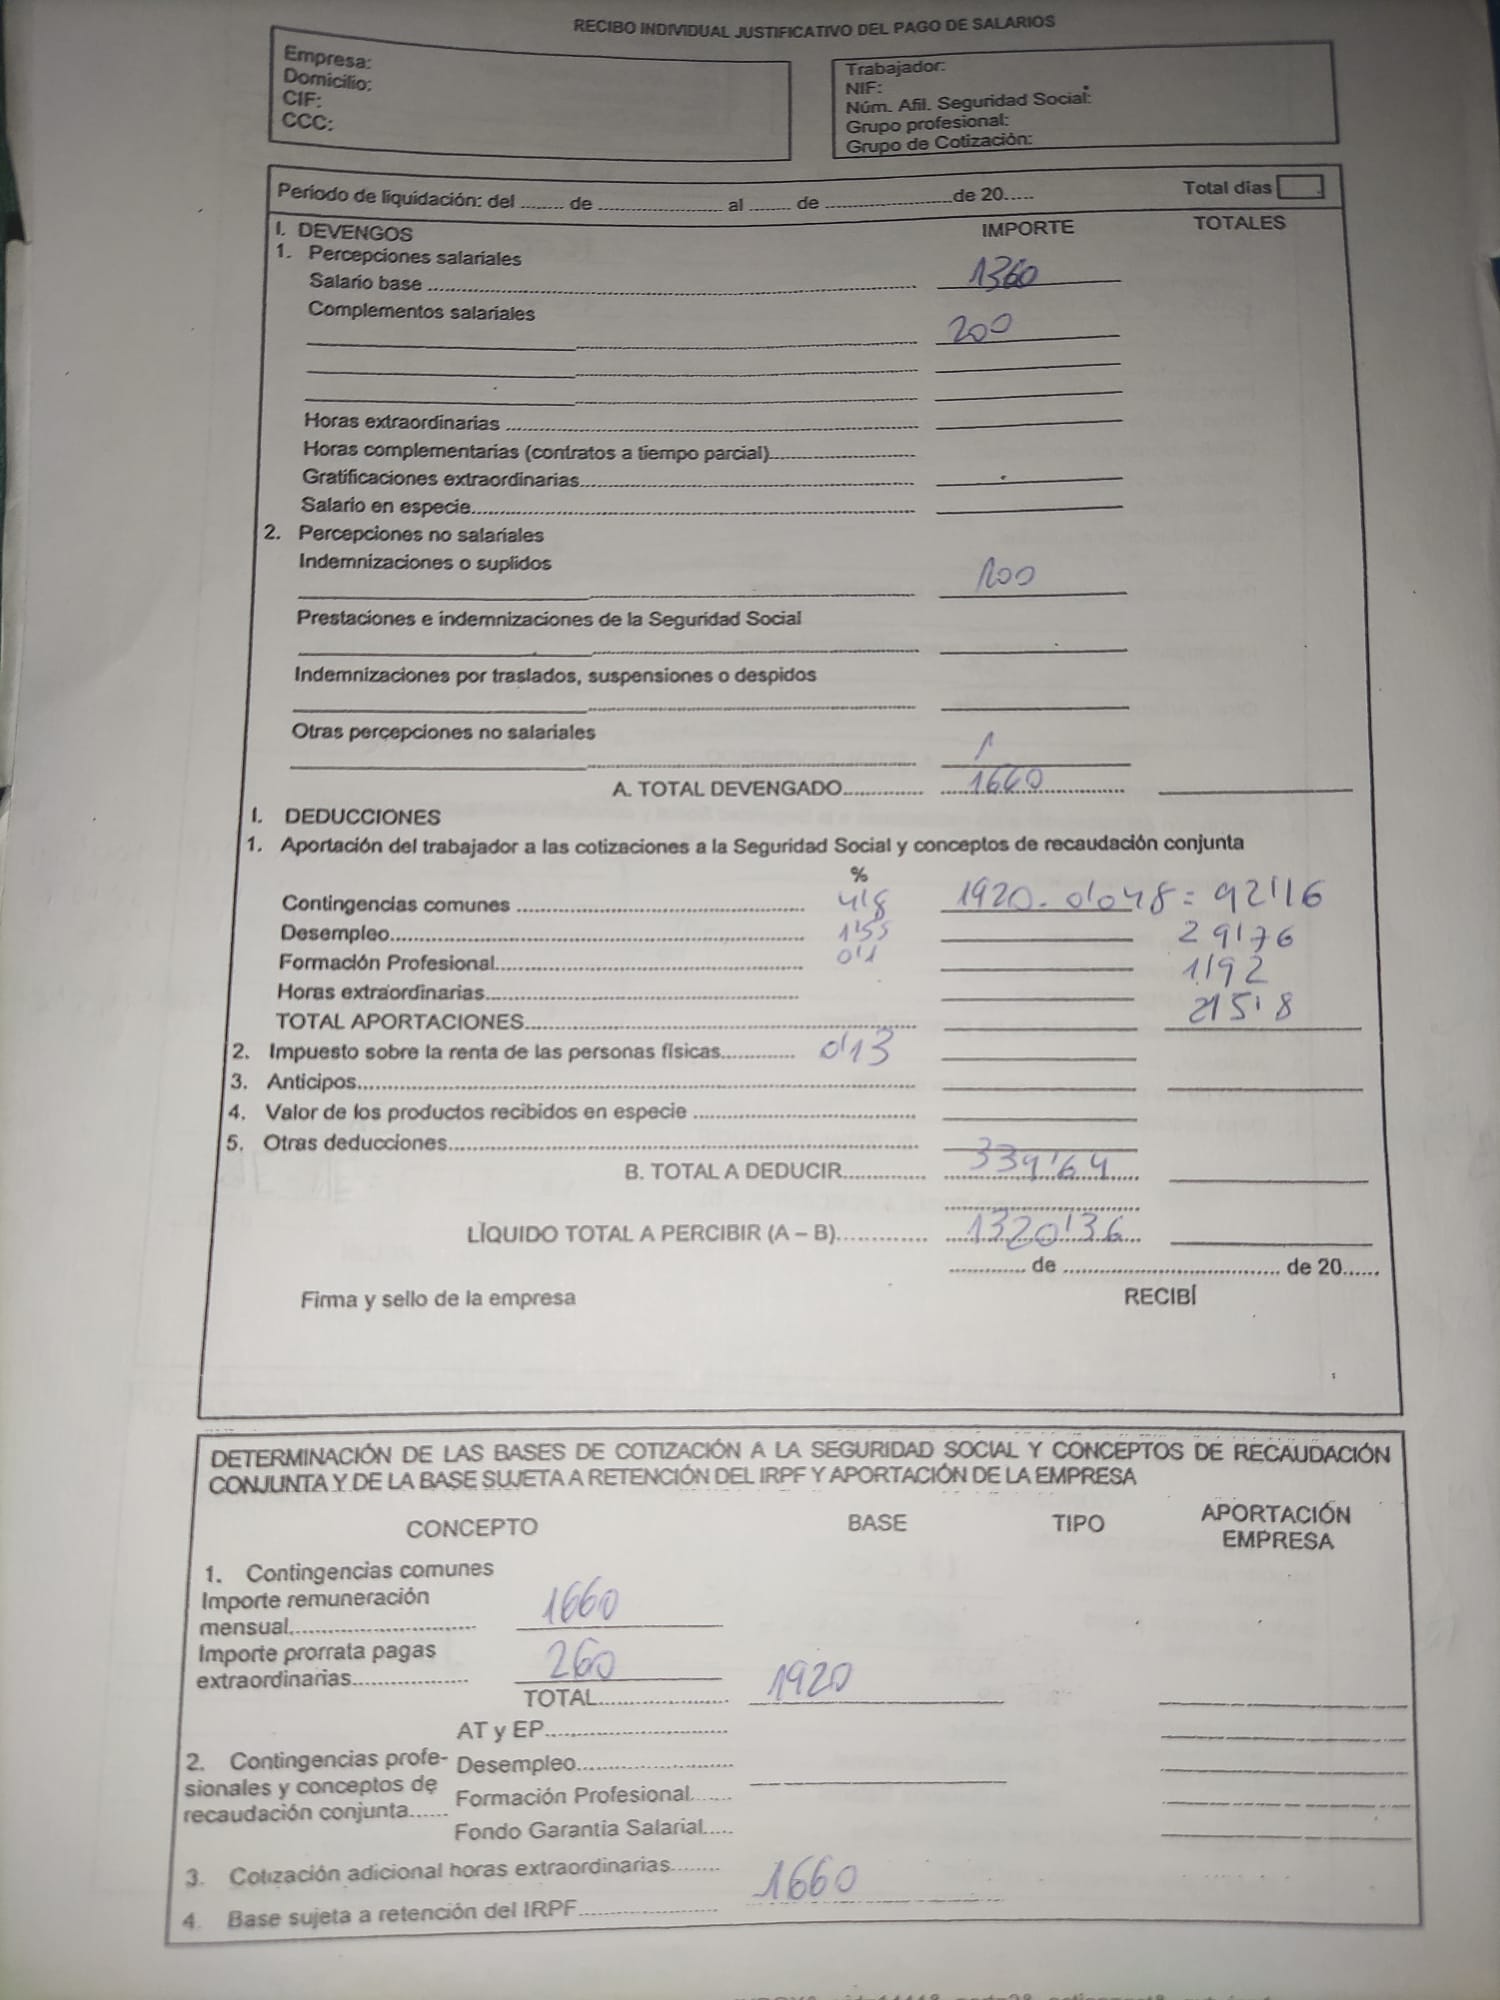 RECIBO INDIVIDUAL JUSTIFICATIVO DEL PAGO DE SALARIOS
Empresa:
Domicilio:
CIF:
CCC:
Trabajador:
NIF:
Núm. Afil. Seguridad Social:
Grupo profesional:
Grupo de Cotización:
Periodo de liquidación: del ........ de ........................ al ........ de ........................ de 20...... Total días
I. DEVENGOS IMPORTE TOTALES
1. Percepciones salariales
Salario base ........................ 1360
Complementos salariales
200
Horas extraordinarias ........................
Horas complementarias (contratos a tiempo parcial)........................
Gratificaciones extraordinarias........................
Salario en especie........................
2. Percepciones no salariales
Indemnizaciones o suplidos
100
Prestaciones e indemnizaciones de la Seguridad Social
Indemnizaciones por traslados, suspensiones o despidos
Otras percepciones no salariales
A. TOTAL DEVENGADO............... 1660
I. DEDUCCIONES
1. Aportación del trabajador a las cotizaciones a la Seguridad Social y conceptos de recaudación conjunta
%
Contingencias comunes ........................ 4'8 1920. 0'048 = 92'16
Desempleo........................ 1'55 29'76
Formación Profesional........................ 0'1 1'92
Horas extraordinarias........................
TOTAL APORTACIONES........................ 215'8
2. Impuesto sobre la renta de las personas físicas............. 0'13
3. Anticipos........................
4. Valor de los productos recibidos en especie ........................
5. Otras deducciones........................
B. TOTAL A DEDUCIR............... 339'64
LÍQUIDO TOTAL A PERCIBIR (A – B).............. 1320'36
.............. de ........................ de 20......
Firma y sello de la empresa RECIBÍ
DETERMINACIÓN DE LAS BASES DE COTIZACIÓN A LA SEGURIDAD SOCIAL Y CONCEPTOS DE RECAUDACIÓN
CONJUNTA Y DE LA BASE SUJETA A RETENCIÓN DEL IRPF Y APORTACIÓN DE LA EMPRESA
CONCEPTO BASE TIPO APORTACIÓN EMPRESA
1. Contingencias comunes
Importe remuneración
mensual........................ 1660
Importe prorrata pagas
extraordinarias.................. 260
TOTAL..................... 1920
AT y EP........................
2. Contingencias profe-
sionales y conceptos de
recaudación conjunta......
Desempleo........................
Formación Profesional.......
Fondo Garantía Salarial.....
3. Cotización adicional horas extraordinarias........
4. Base sujeta a retención del IRPF..................... 1660